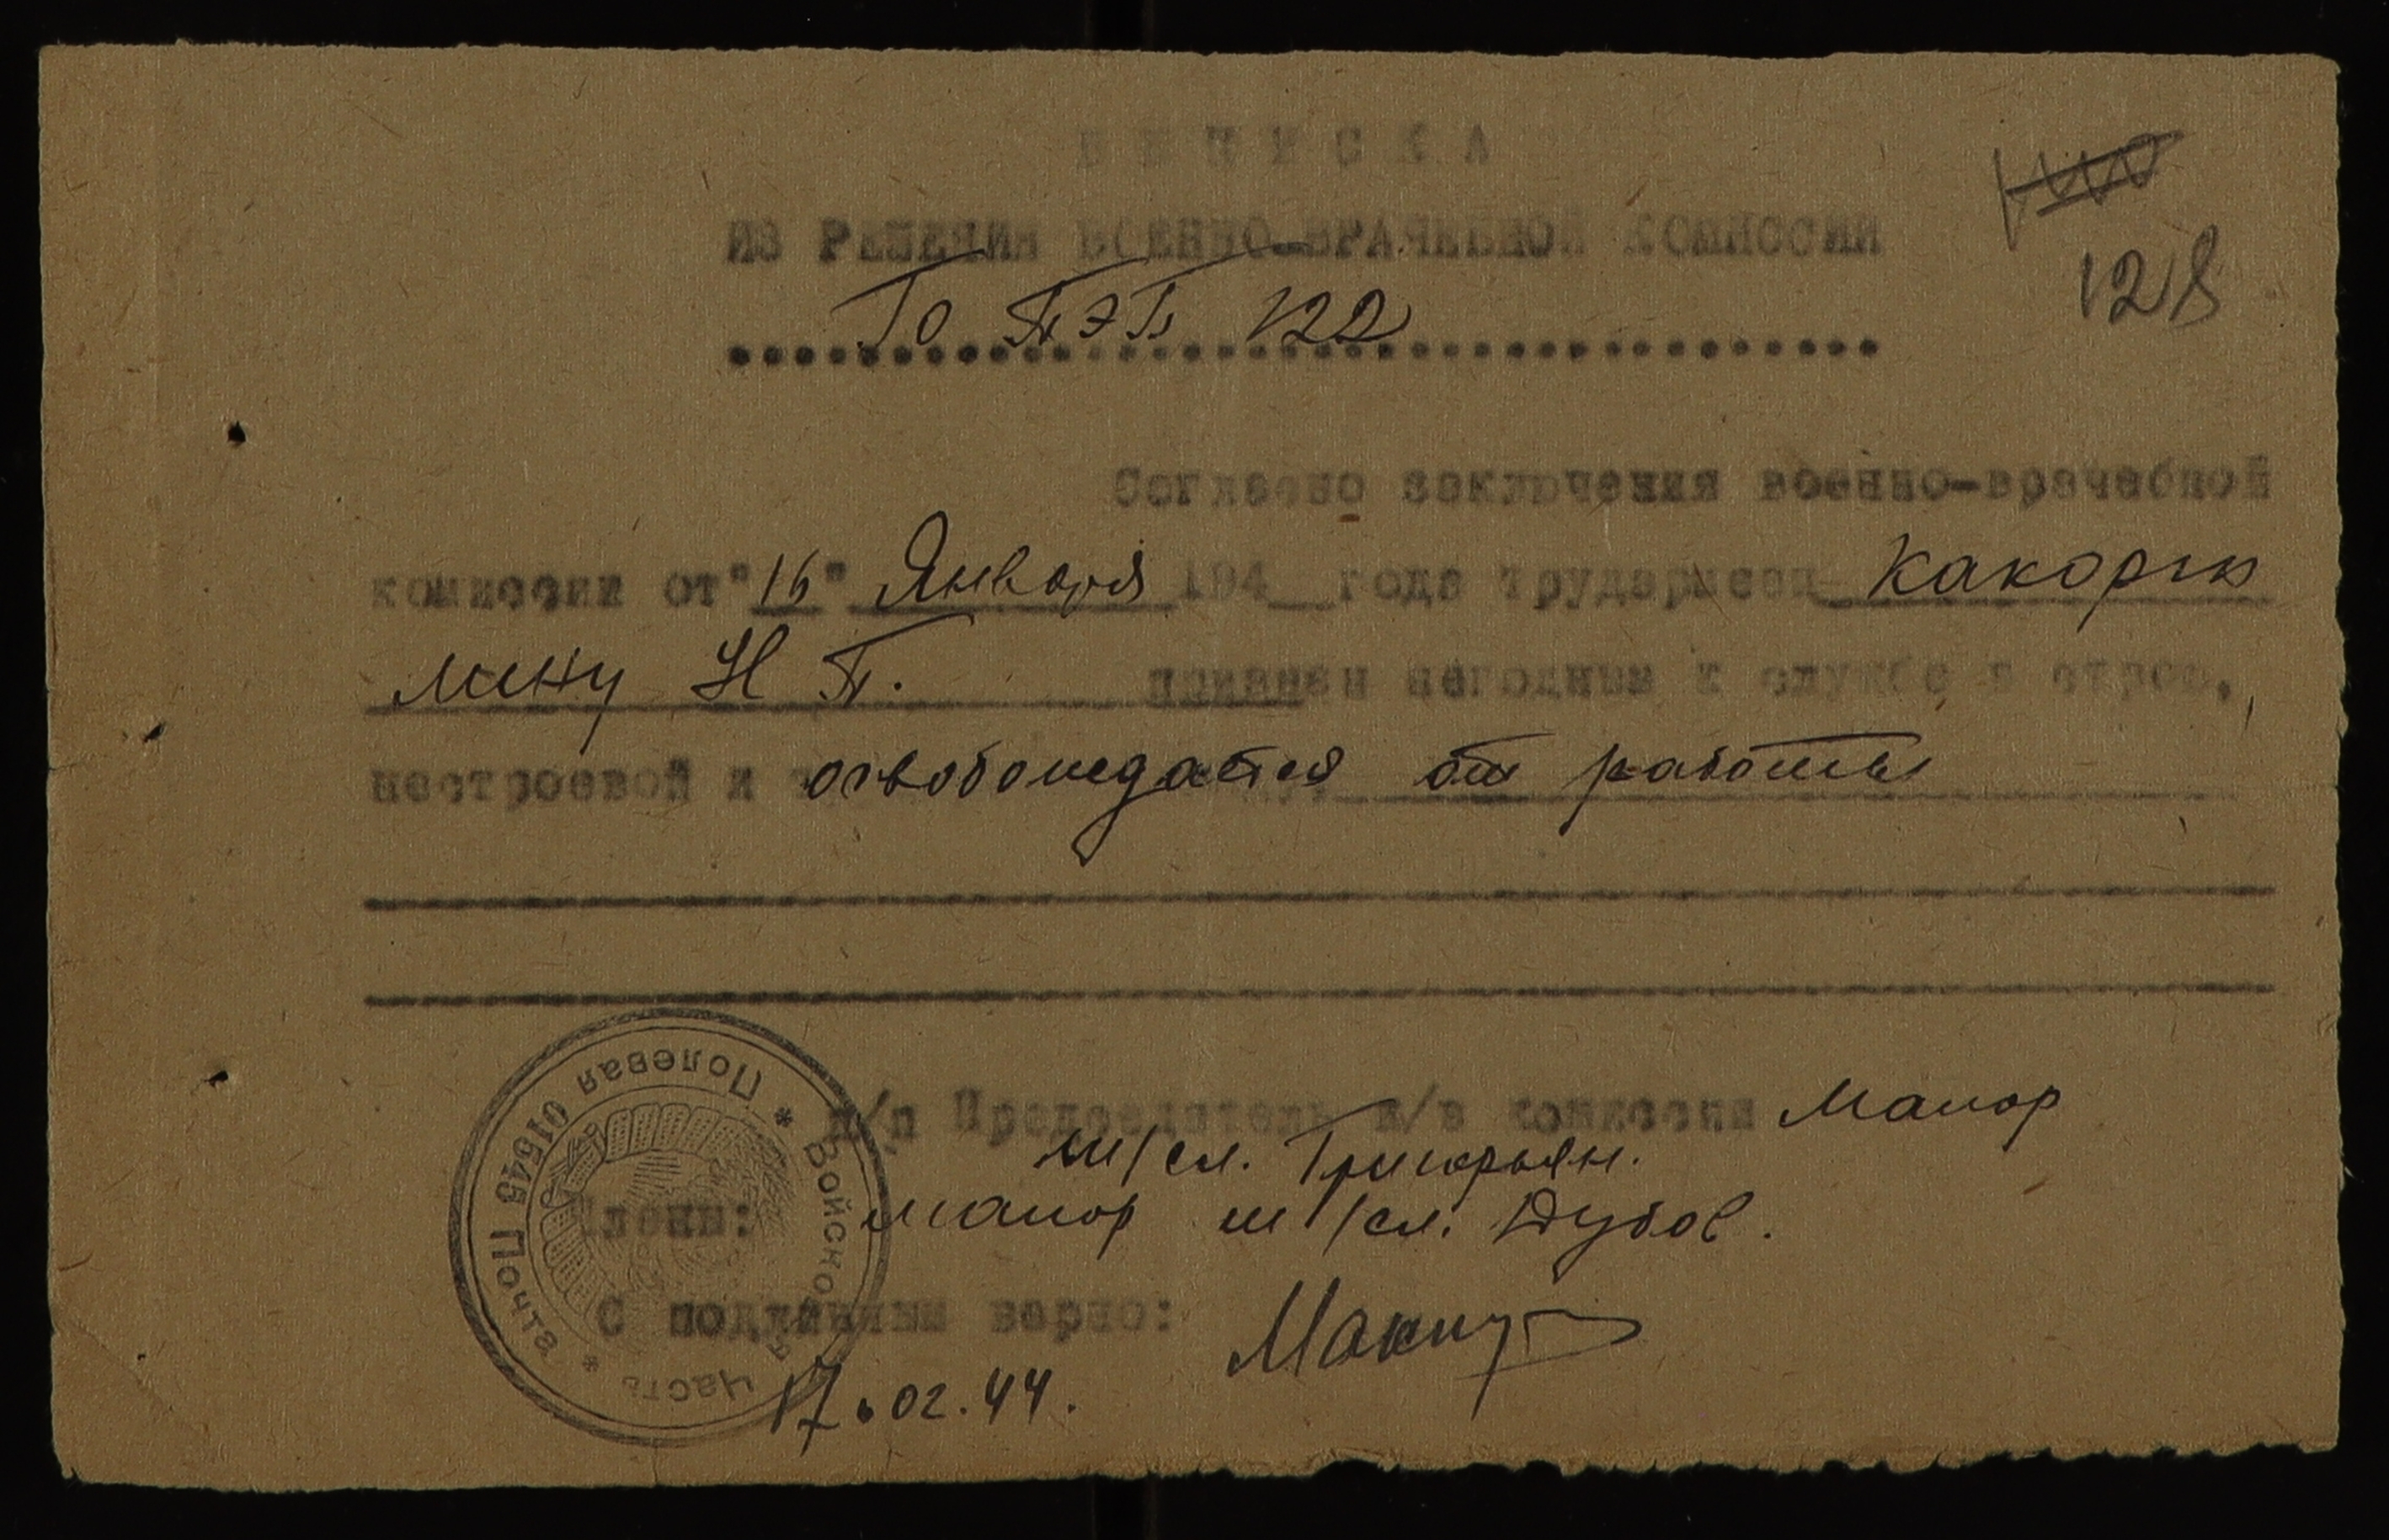 ВЫПИСКА
128
ИЗ РЕШЕНИЯ ВОЕННО-ВРАЧЕБНОЙ КОМИССИИ
ГО ПЭП 122
Согласно заключения военно-врачебной
комиссии от "16" Января 194__ года трудармеец
мину Н П. признан негодным к службе в строю,
нестроевой и освобождается от работы
п/п Председатель в/в комиссии Маиор
м/сл. Григорьян.
Члены: маиор м/сл. Дубов.
С подлинным верно:
17.02.44.
Войсковая часть * Полевая Почта 01545 *